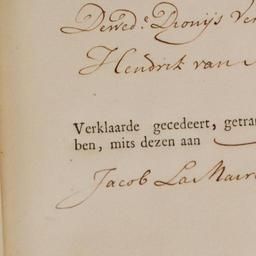 Dewed.e Dionijs Ver
Hendrik van
Verklaarde gecedeert, getra
ben, mits dezen aan
Jacob La Mair